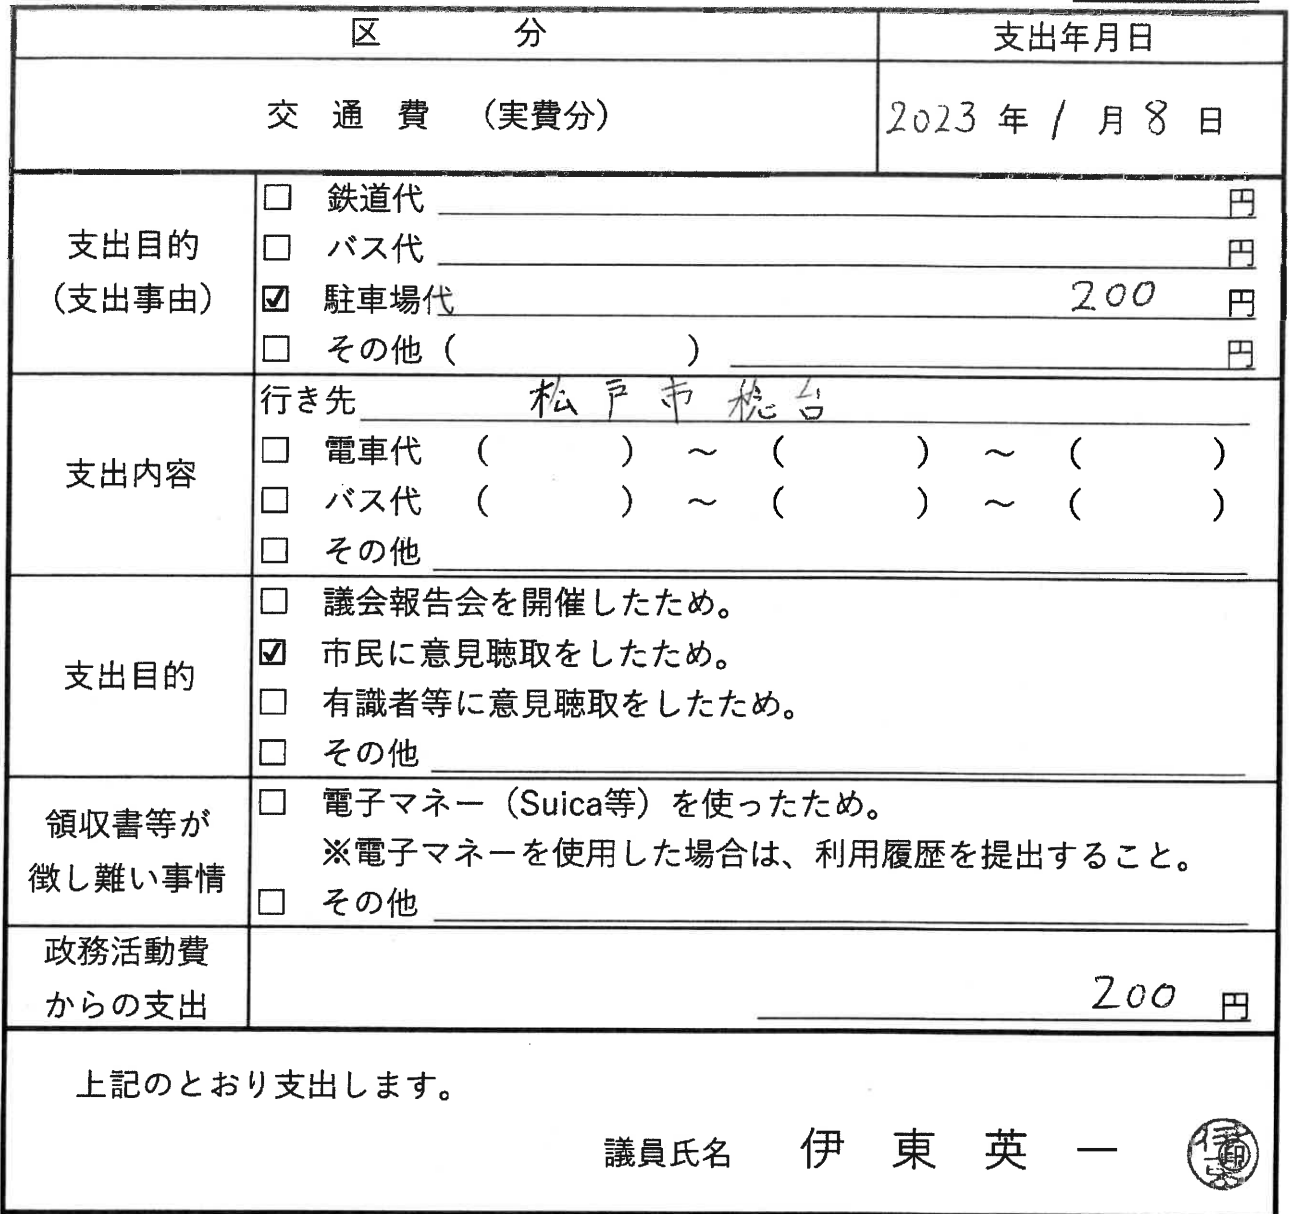 区 分 支出年月日
交 通 費 （実費分） 2023 年 1 月 8 日
支出目的
（支出事由）
☐ 鉄道代 円
☐ バス代 円
☑ 駐車場代 200 円
☐ その他 ( ) 円
支出内容
行き先 松戸市稔台
☐ 電車代 ( ) ～ ( ) ～ ( )
☐ バス代 ( ) ～ ( ) ～ ( )
☐ その他
支出目的
☐ 議会報告会を開催したため。
☑ 市民に意見聴取をしたため。
☐ 有識者等に意見聴取をしたため。
☐ その他
領収書等が
徴し難い事情
☐ 電子マネー（Suica等）を使ったため。
※電子マネーを使用した場合は、利用履歴を提出すること。
☐ その他
政務活動費
からの支出
200 円
上記のとおり支出します。
議員氏名 伊 東 英 一 印